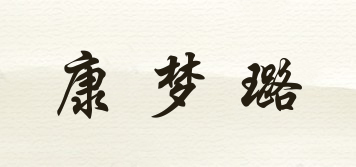 康梦璐